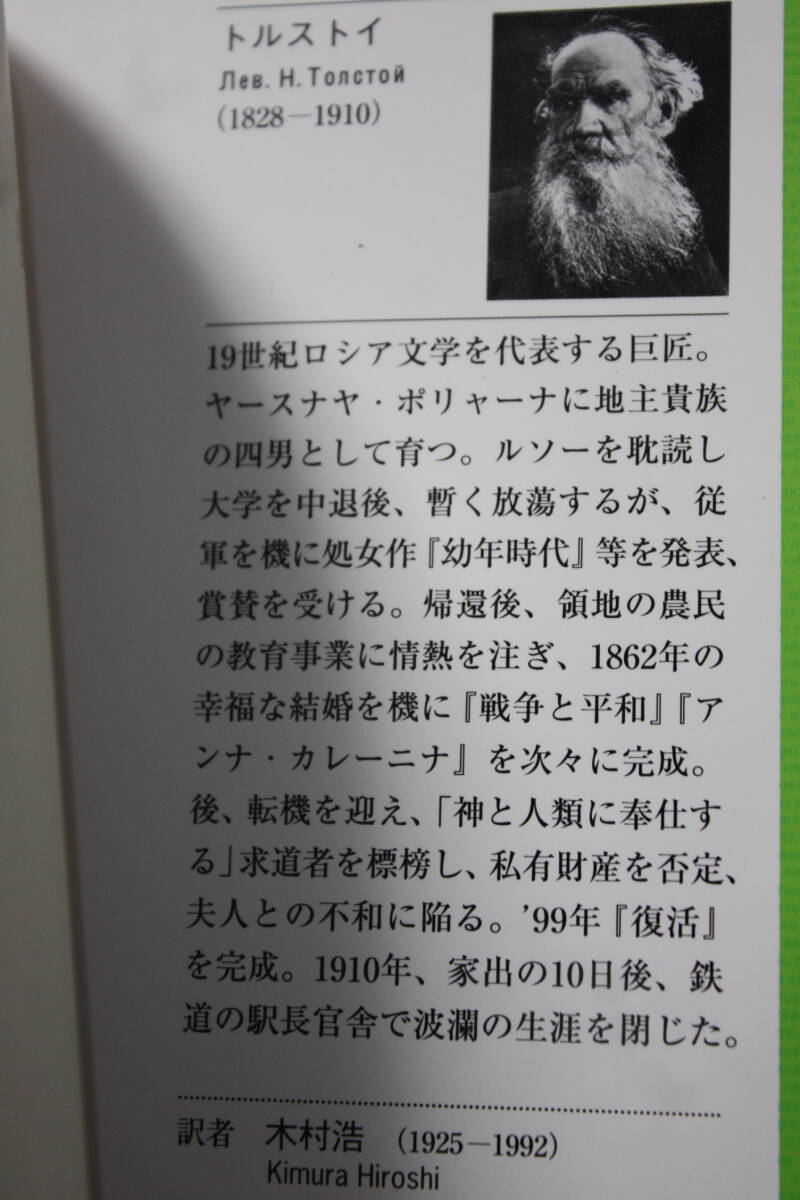 トルストイ
Лев. Н. Толстой
(1828―1910)
19世紀ロシア文学を代表する巨匠。
ヤースナヤ・ポリャーナに地主貴族
の四男として育つ。ルソーを耽読し
大学を中退後、暫く放蕩するが、従
軍を機に処女作『幼年時代』等を発表、
賞賛を受ける。帰還後、領地の農民
の教育事業に情熱を注ぎ、1862年の
幸福な結婚を機に『戦争と平和』『ア
ンナ・カレーニナ』を次々に完成。
後、転機を迎え、「神と人類に奉仕す
る」求道者を標榜し、私有財産を否定、
夫人との不和に陥る。'99年『復活』
を完成。1910年、家出の10日後、鉄
道の駅長官舎で波瀾の生涯を閉じた。
訳者 木村浩 (1925―1992)
Kimura Hiroshi